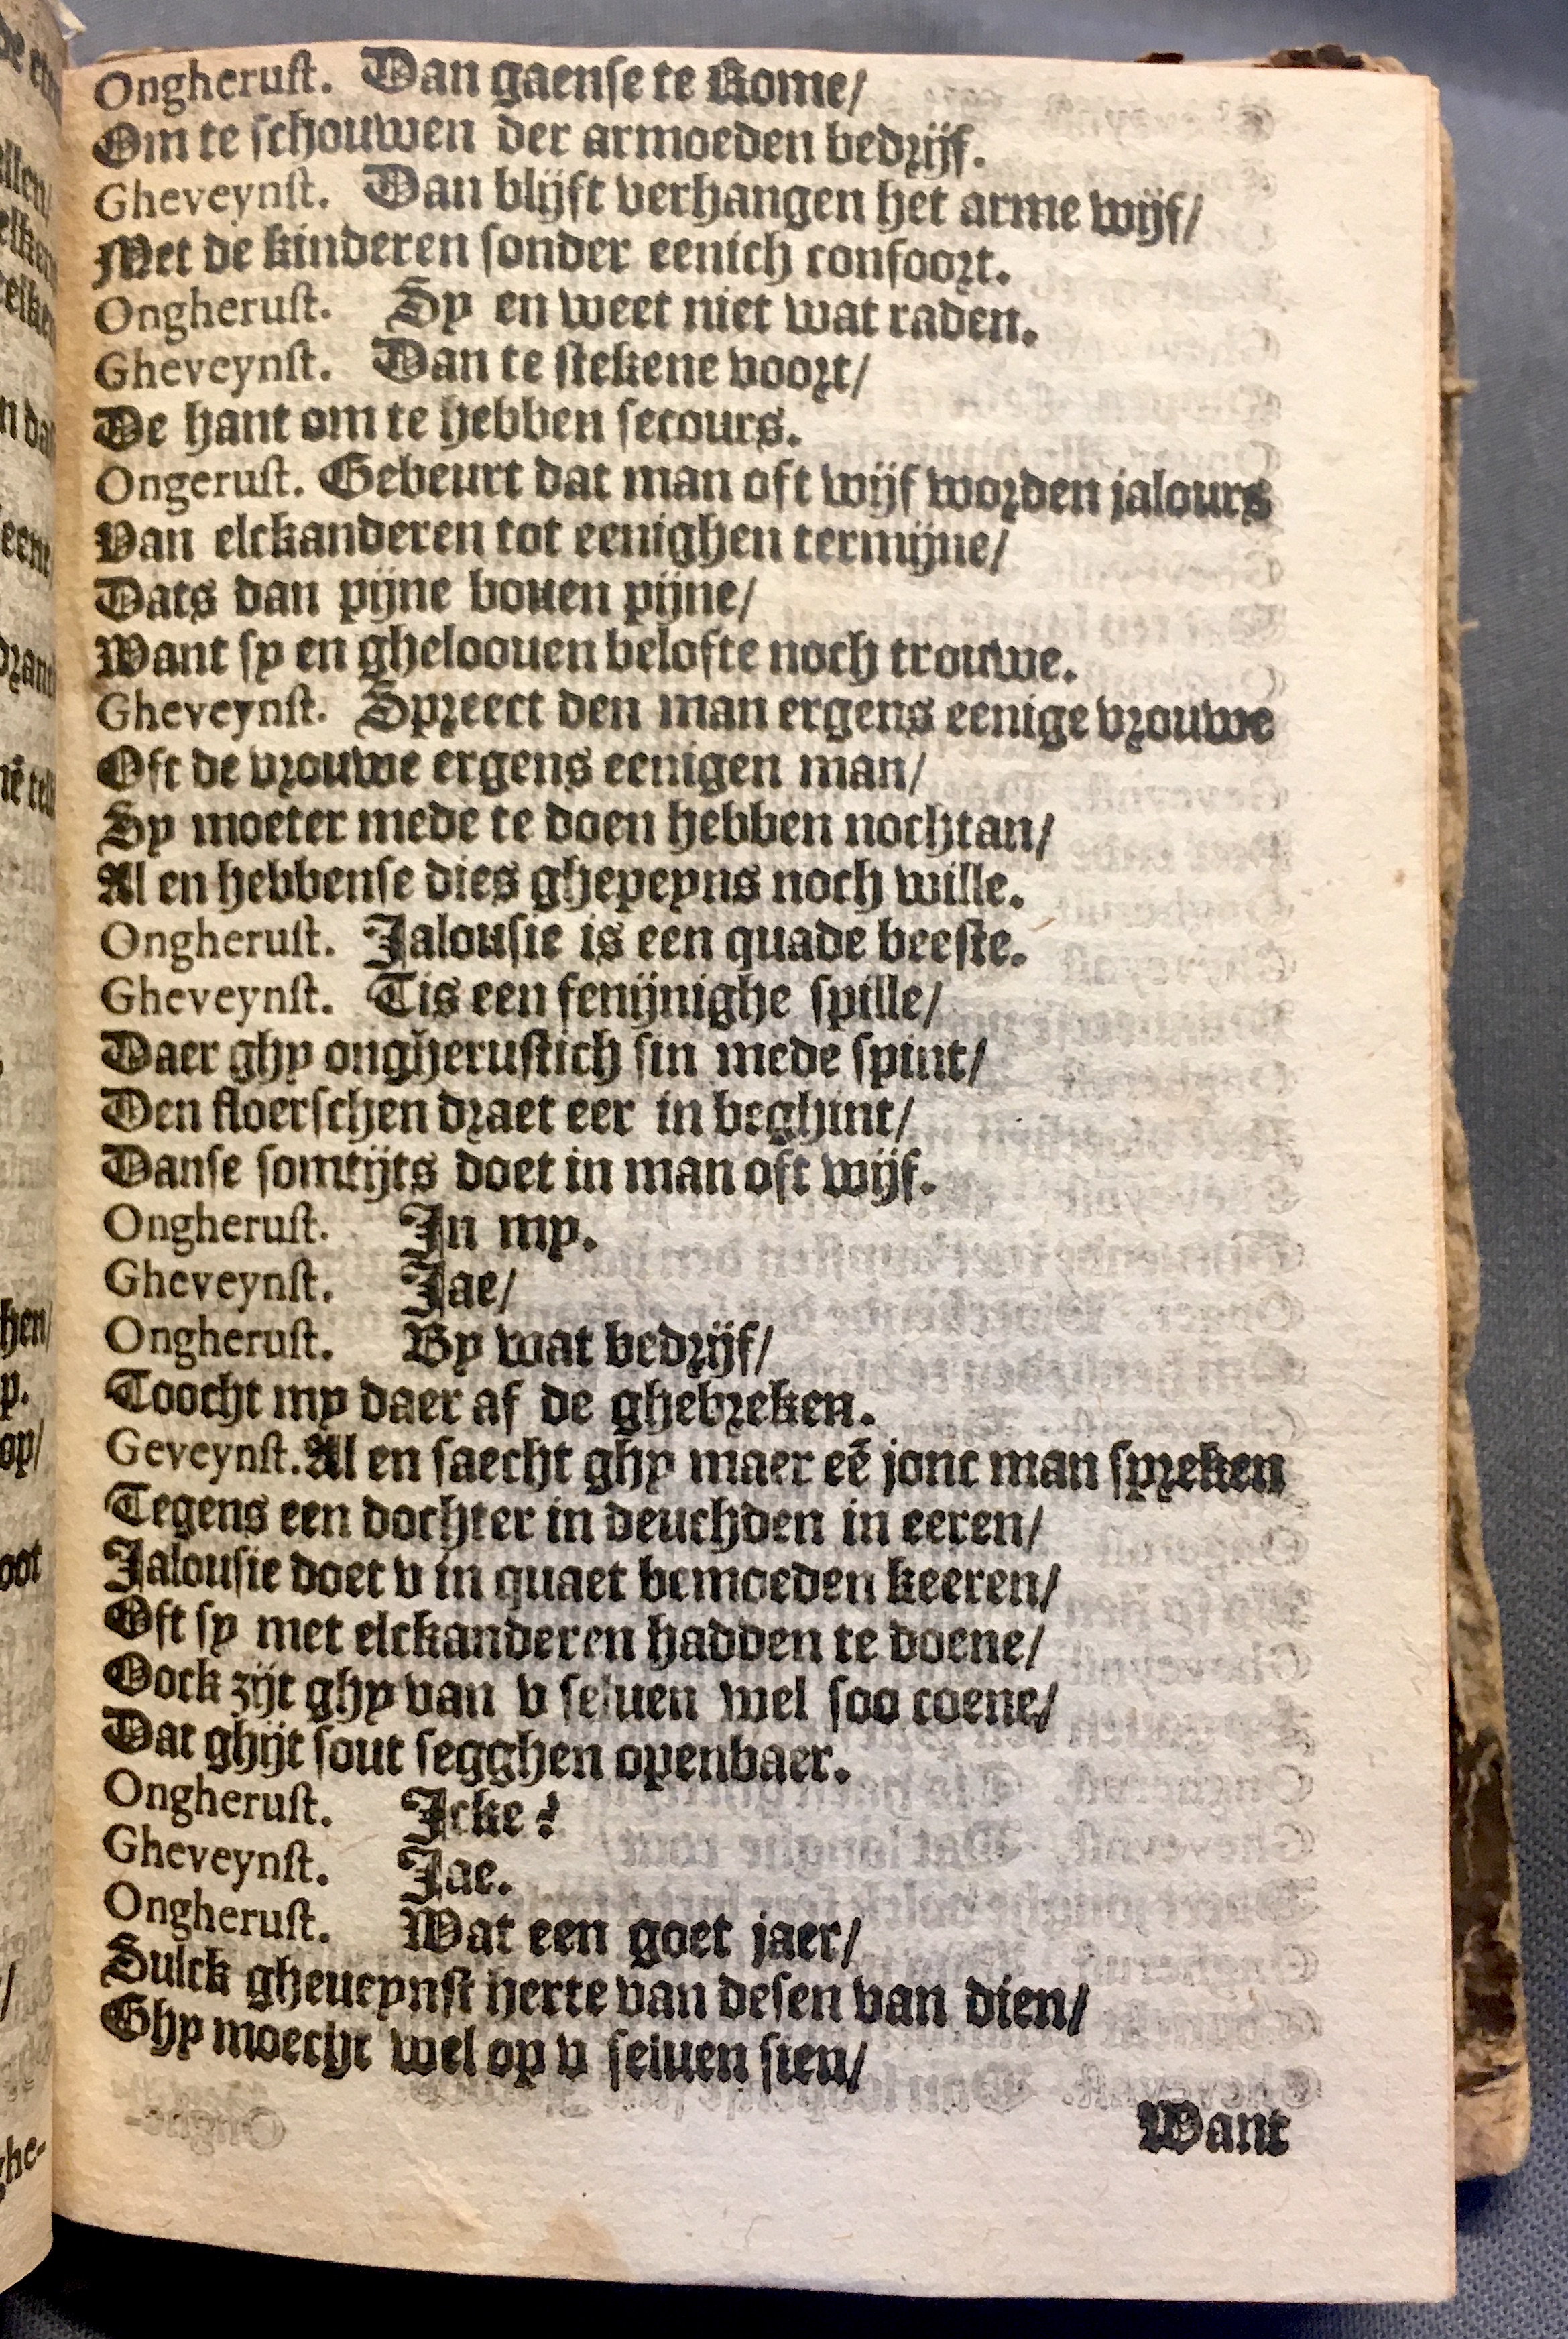 Ongheruſt. Dan gaenſe te Rome/
Om te ſchouwen der armoeden bedrijf.
Gheveynſt. Dan blijft verhangen het arme wijf/
Met de kinderen ſonder eenich confoort.
Ongheruſt. Sy en weet niet wat raden.
Gheveynſt. Dan te ſtekene voort/
De hant om te hebben ſecours.
Ongeruſt. Gebeurt dat man oft wijf worden jalours
Van elckanderen tot eenighen termijne/
Dats dan pijne bouen pijne/
Want ſy en gheloouen belofte noch trouwe.
Gheveynſt. Spreect den man ergens eenige vrouwe
Oft de vrouwe ergens eenigen man/
Sy moeter mede te doen hebben nochtan/
Al en hebbenſe dies ghepeyns noch wille.
Ongheruſt. Jalouſie is een quade beeſte.
Gheveynſt. Tis een fenijnighe ſpille/
Daer ghy ongheruſtich ſin mede ſpint/
Den floerſchen draet eer in beghint/
Danſe ſomtijts doet in man oft wijf.
Ongheruſt. In my.
Gheveynſt. Jae/
Ongheruſt. By wat bedrijf/
Toocht my daer af de ghebreken.
Geveynſt. Al en ſaecht ghy maer eē jonc man ſpreken
Tegens een dochter in deuchden in eeren/
Jalouſie doet v in quaet bemoeden keeren/
Oft ſy met elckanderen hadden te doene/
Oock zijt ghy van v ſeluen wel ſoo coene/
Dat ghijt ſout ſegghen openbaer.
Ongheruſt. Icke?
Gheveynſt. Jae.
Ongheruſt. Wat een goet jaer/
Sulck gheueynſt herte van deſen van dien/
Ghy moecht wel op v ſeluen ſien/
Want